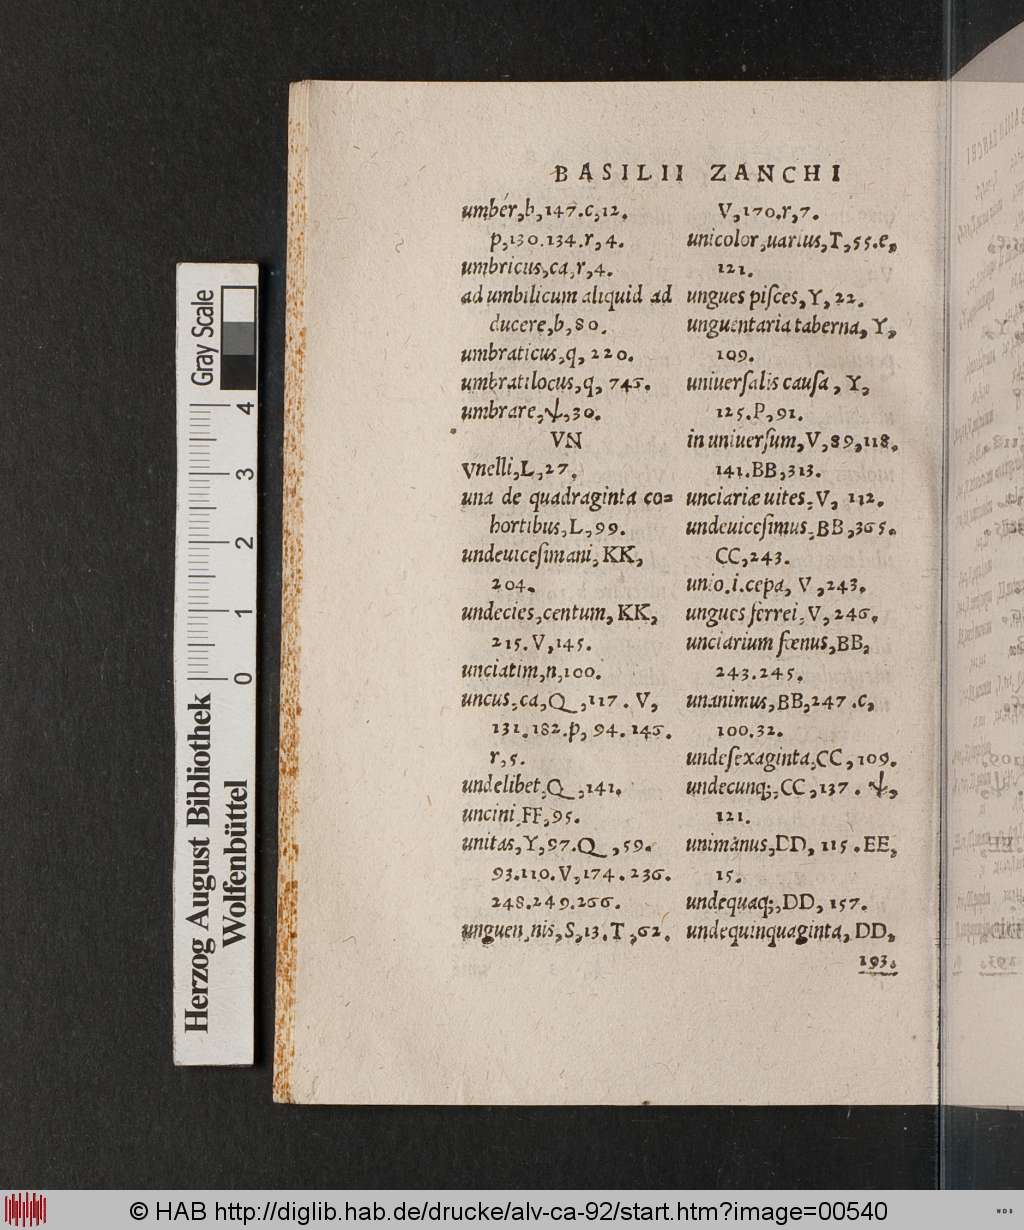 BASILII ZANCHI
umbér,b,147.c,12.
p,130.134.r,4.
umbricus,ca,r,4.
ad umbilicum aliquid ad
ducere,b,80.
umbraticus,q,220.
umbratilocus,q,746.
umbrare,ψ,30.
VN
Vnelli,L,27.
una de quadraginta co=
hortibus,L,99.
undeuicesimani,KK,
204.
undecies,centum,KK,
215.V,145.
unciatim,n,100.
uncus,ca,Q,117.V,
131.182.p,94.146.
r,5.
undelibet,Q,141.
uncini,FF,95.
unitas,Y,97.Q,59.
93.110.V,174.236.
248.249.266.
unguen,nis,S,13.T,62.
V,170.r,7.
unicolor,uarius,T,55.e,
121.
ungues piſces,Y,22.
unguentaria taberna,Y,
109.
uniuerſalis cauſa,Y,
125.P,91.
in uniuerſum,V,89,118.
141.BB,313.
unciariæ uites,V,112.
undeuicesimus,BB,365.
CC,243.
unio.i.cepa,V,243.
ungues ferrei,V,246.
unciarium fœnus,BB,
243.245.
unanimus,BB,247.c,
100.32.
undeſexaginta,CC,109.
undecunq;,CC,137.ψ,
121.
unimanus,DD,115.EE,
15.
undequaq;,DD,157.
undequinquaginta,DD,
193.
Gray Scale
4
3
2
1
0
Herzog August Bibliothek
Wolfenbüttel
© HAB http://diglib.hab.de/drucke/alv-ca-92/start.htm?image=00540